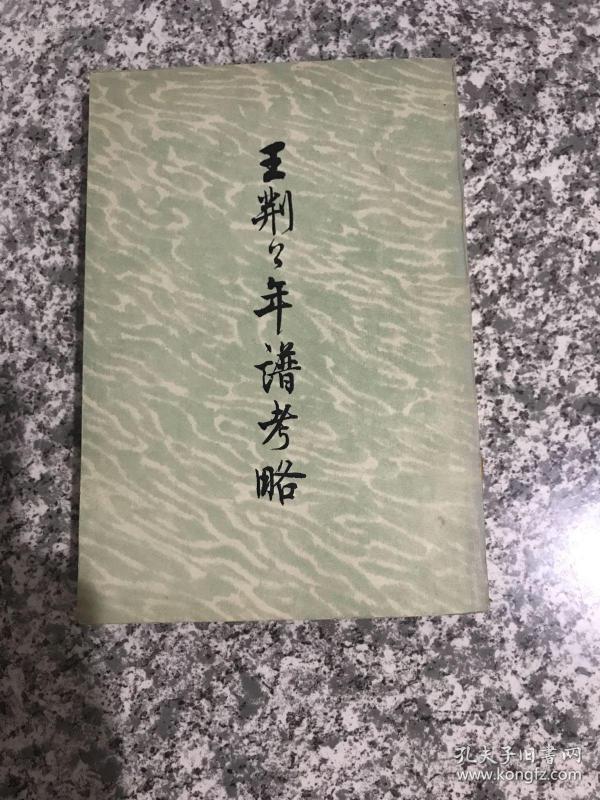 王荆公年譜考略
孔夫子旧書网
www.kongfz.com